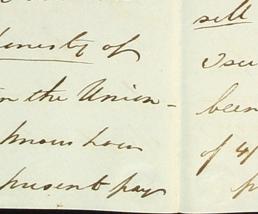 of
in the Union -
know how
present pay
sell
I su
been
of 4/
p